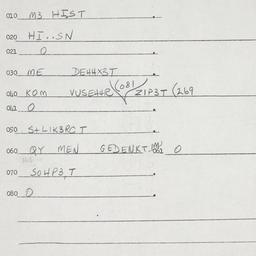 010 M3 HIST
020 HI..SN
021 O
030 ME DEHHXST
040 KOM VUSEHHR (081) ZIP3T (269
041 O
050 S+LIK3RCT
060 QY MEN GEDENKT. 061 O
070 SOHP3,T
080 O